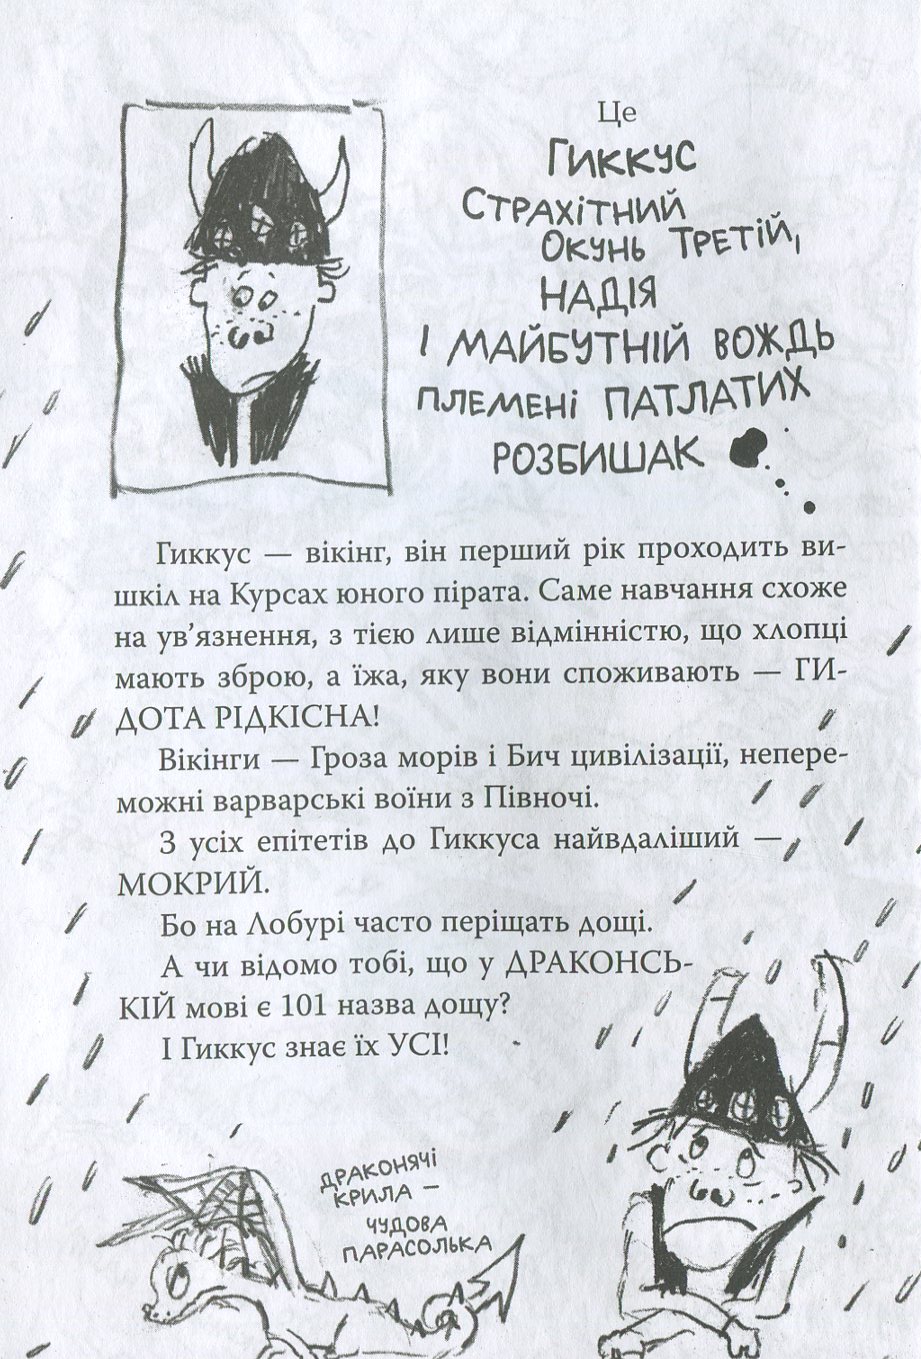 Це
ГИККУС
СТРАХІТНИЙ
ОКУНЬ ТРЕТІЙ,
НАДІЯ
І МАЙБУТНІЙ ВОЖДЬ
ПЛЕМЕНІ ПАТЛАТИХ
РОЗБИШАК
Гиккус — вікінг, він перший рік проходить ви-
шкіл на Курсах юного пірата. Саме навчання схоже
на ув’язнення, з тією лише відмінністю, що хлопці
мають зброю, а їжа, яку вони споживають — ГИ-
ДОТА РІДКІСНА!
Вікінги — Гроза морів і Бич цивілізації, непере-
можні варварські воїни з Півночі.
З усіх епітетів до Гиккуса найвдаліший —
МОКРИЙ.
Бо на Лобурі часто періщать дощі.
А чи відомо тобі, що у ДРАКОНСЬ-
КІЙ мові є 101 назва дощу?
І Гиккус знає їх УСІ!
ДРАКОНЯЧІ
КРИЛА –
ЧУДОВА
ПАРАСОЛЬКА